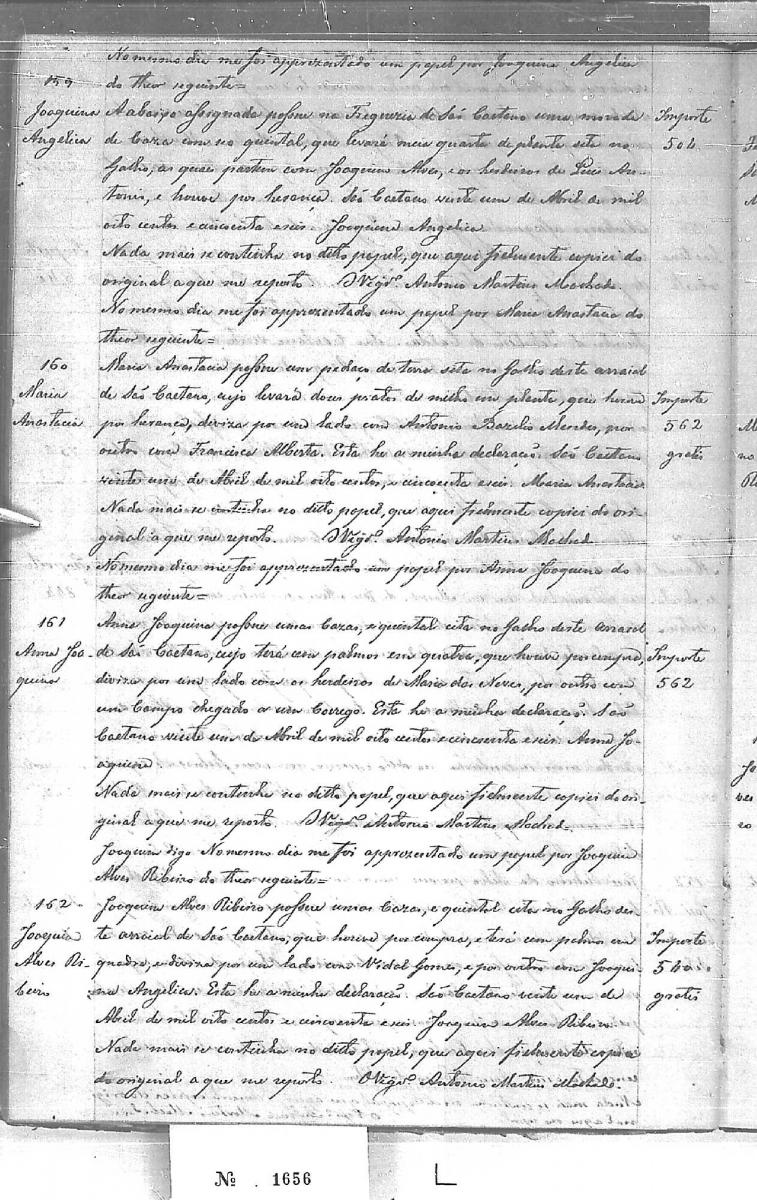 No mesmo dia me foi apprezentado um papel por Joaquina Angelica
do theor seguinte=
159
Joaquina
Angelica
A abaixo assignada possue na Freguezia de São Caetano uma morada
de Caza com no quintal, que levará meia quarta de planta sita no
Galho, as quaes partem com Joaquim Alves, e os herdeiros de Luis An-
tonio, e houve por herança. São Caetano vinte um de Abril de mil
oito centos e cincoenta e seis. Joaquina Angelica
Importe
504
Nada mais se continha no ditto papel, que aqui fielmente copiei do
original a que me reporto. O Vigro. Antonio Martins Machado.
No mesmo dia me foi apprezentado um papel por Maria Anastacia do
theor seguinte=
160
Maria
Anastacia
Maria Anastacia possue um pedaço de terra sita no Galho deste arraial
de São Caetano, cujo levará dous pratos de milho em planta, que houve
por herança, diviza por um lado com Antonio Bazilio Mendes, por
outro com Francisca Alberta. Esta he a minha declaração. São Caetano
vinte um de Abril de mil oito centos, e cincoenta e seis. Maria Anastacia
Importe
562
gratis
Nada mais se continha no ditto papel, que aqui fielmente copiei do ori-
ginal a que me reporto. O Vigro. Antonio Martins Machado
No mesmo dia me foi apprezentado um papel por Anna Joaquina do
theor seguinte=
161
Anna Joa-
quina
Anna Joaquina possue umas Cazas, e quintal cita no Galho deste arraial
de São Caetano, cujo terá cem palmos em quadra, que houve por compra,
diviza por um lado com os herdeiros de Maria das Neves, por outro com
um Campo chegado a um Corrego. Esta he a minha declaração. São
Caetano vinte um de Abril de mil oito centos e cincoenta e seis. Anna Jo-
aquina
Importe
562
Nada mais se continha no ditto papel, que aqui fielmente copiei do ori-
ginal a que me reporto. O Vigro. Antonio Martins Machado
Joaquim digo No mesmo dia me foi apprezentado um papel por Joaquim
Alves Ribeiro do theor seguinte=
162
Joaquim
Alves Ri-
beiro
Joaquim Alves Ribeiro possue umas Cazas, e quintal cita no Galho des-
te arraial de São Caetano, que houve por compra, e terá cem palmos em
quadra, e diviza por um lado com Vidal Gomes, e por outro com Joaqui-
na Angelica. Esta he a minha declaração. São Caetano vinte um de
Abril de mil oito centos e cincoenta e seis. Joaquim Alves Ribeiro
Importe
540
gratis
Nada mais se continha no ditto papel, que aqui fielmente copiei
do original a que me reporto. O Vigro. Antonio Martins Machado.
№ 1656
L